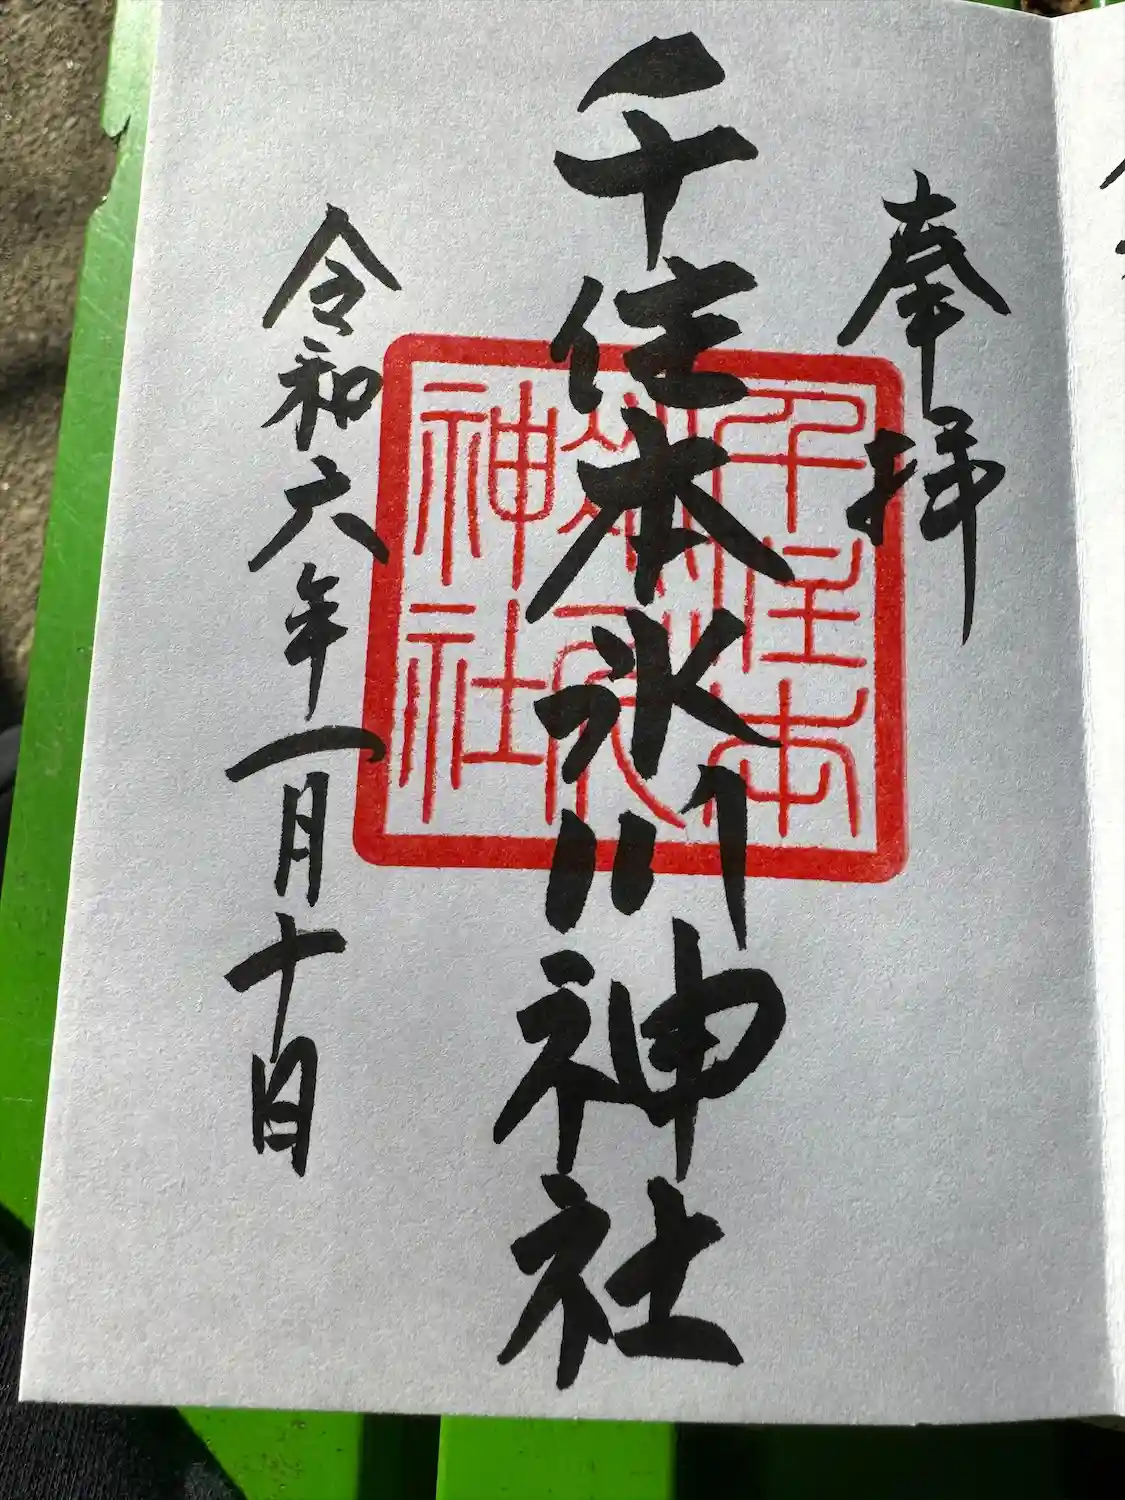 奉拝
千住本氷川神社
令和六年一月十日
千住本
氷川
神社